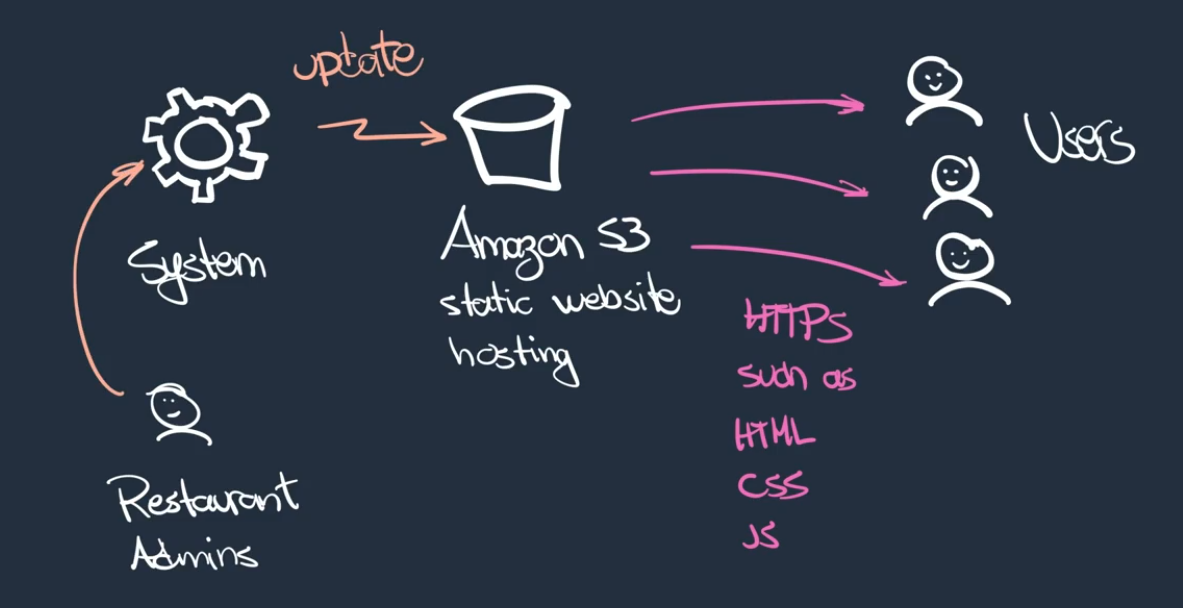 update
Users
System
Amazon S3
static website
hosting
HTTPS
such as
HTML
CSS
JS
Restaurant
Admins